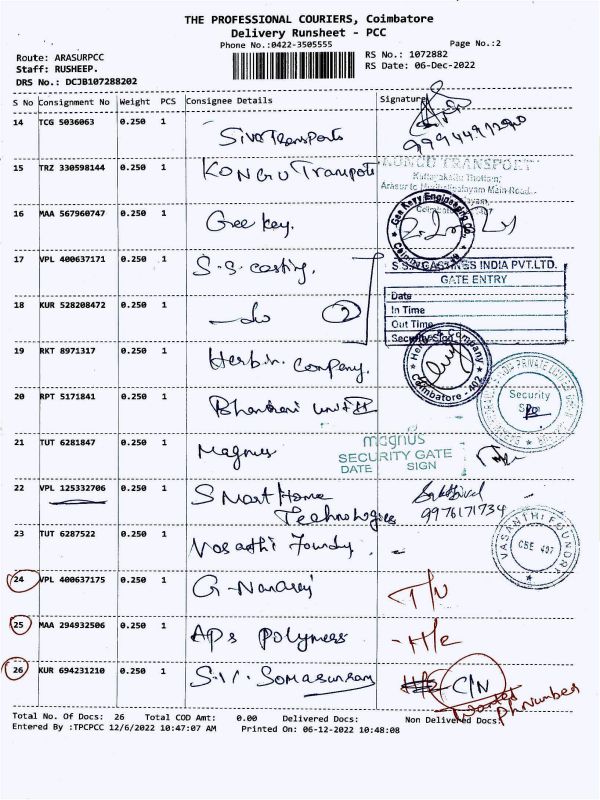 THE PROFESSIONAL COURIERS, Coimbatore
Delivery Runsheet - PCC
Phone No.:0422-3505555 Page No.:2
Route: ARASURPCC RS No.: 1072882
Staff: RUSHEEP. RS Date: 06-Dec-2022
DRS No.: DCJB107288202
S No Consignment No Weight PCS Consignee Details Signature
14 TCG 5036063 0.250 1 Siva Transports
15 TRZ 330598144 0.250 1 KONGU Transpots KONGU TRANSPORT
Kattayakattu Thottam,
Arasur to Muthalipalayam Main Road
16 MAA 567960747 0.250 1 Gee key. Gee Kayy Engineering Co Coimbatore
17 VPL 400637171 0.250 1 S.S. casting. S.S.N.CASTINGS INDIA PVT.LTD.
GATE ENTRY
Date
In Time
Out Time
Security Sign
18 KUR 528208472 0.250 1 -do 2
19 RKT 8971317 0.250 1 Herbin company. Company Coimbatore - 402
20 RPT 5171841 0.250 1 unit II Security
21 TUT 6281847 0.250 1 Magnus magnus
SECURITY GATE
DATE SIGN
22 VPL 125332706 0.250 1 Smart Home
Technologies 9976171734
23 TUT 6287522 0.250 1 Vasathi Foundy. VASANTHI FOUNDRY CBE 407
24 VPL 400637175 0.250 1 T/N
25 MAA 294932506 0.250 1 APs polymers H/e
26 KUR 694231210 0.250 1 C/N
wanted
Ph Number
Total No. Of Docs: 26 Total COD Amt: 0.00 Delivered Docs: Non Delivered Docs:
Entered By :TPCPCC 12/6/2022 10:47:07 AM Printed On: 06-12-2022 10:48:08